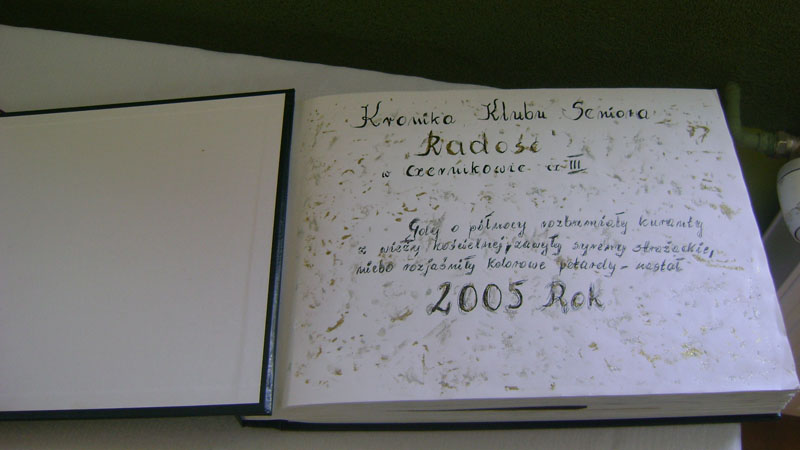 Kronika Klubu Seniora
Radość
w Czernikowie cz III
Gdy o północy rozbrmiały kuranty
z wieży kościelnej, zawyły syreny strażackie,
niebo rozjaśniły kolorowe petardy - nastał
2005 Rok